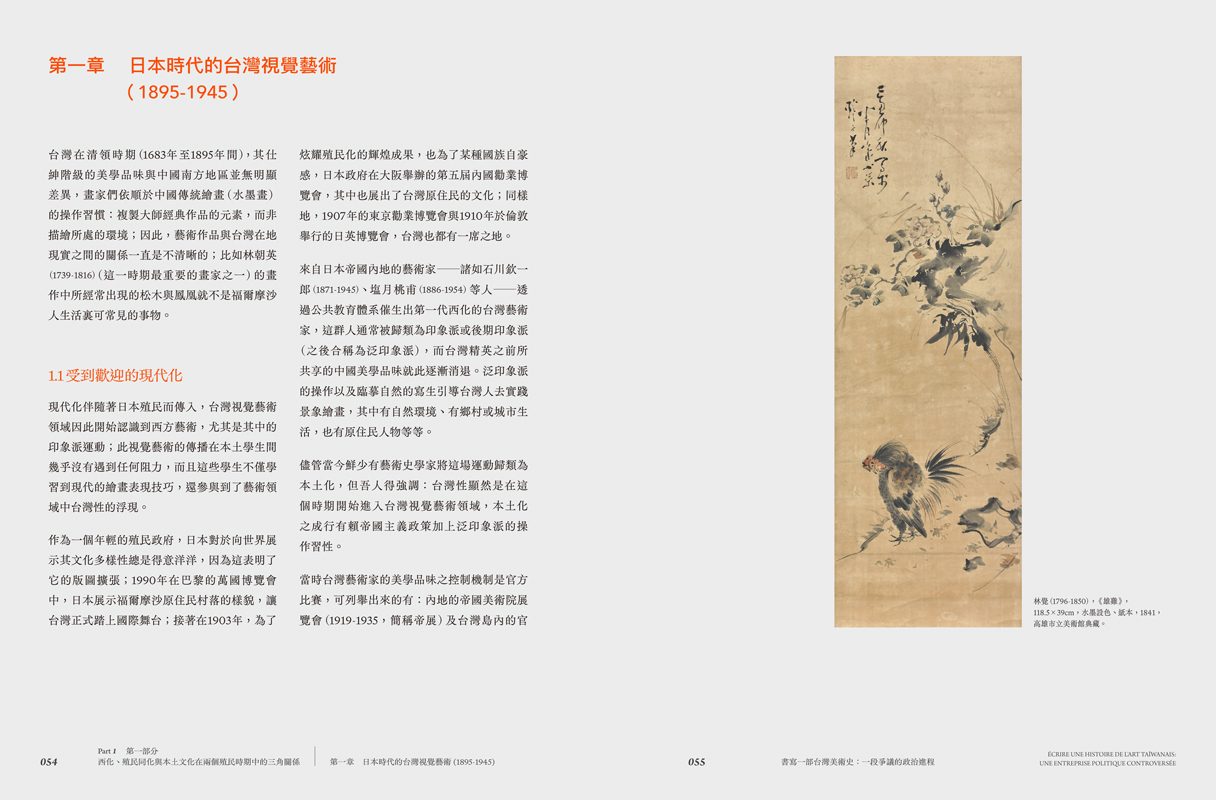 第一章 日本時代的台灣視覺藝術
（1895-1945）
台灣在清領時期（1683年至1895年間），其仕
紳階級的美學品味與中國南方地區並無明顯
差異，畫家們依順於中國傳統繪畫（水墨畫）
的操作習慣：複製大師經典作品的元素，而非
描繪所處的環境；因此，藝術作品與台灣在地
現實之間的關係一直是不清晰的；比如林朝英
（1739-1816）（這一時期最重要的畫家之一）的畫
作中所經常出現的松木與鳳凰就不是福爾摩沙
人生活裏可常見的事物。
1.1 受到歡迎的現代化
現代化伴隨著日本殖民而傳入，台灣視覺藝術
領域因此開始認識到西方藝術，尤其是其中的
印象派運動；此視覺藝術的傳播在本土學生間
幾乎沒有遇到任何阻力，而且這些學生不僅學
習到現代的繪畫表現技巧，還參與到了藝術領
域中台灣性的浮現。
作為一個年輕的殖民政府，日本對於向世界展
示其文化多樣性總是得意洋洋，因為這表明了
它的版圖擴張；1990年在巴黎的萬國博覽會
中，日本展示福爾摩沙原住民村落的樣貌，讓
台灣正式踏上國際舞台；接著在1903年，為了
炫耀殖民化的輝煌成果，也為了某種國族自豪
感，日本政府在大阪舉辦的第五屆內國勸業博
覽會，其中也展出了台灣原住民的文化；同樣
地，1907年的東京勸業博覽會與1910年於倫敦
舉行的日英博覽會，台灣也都有一席之地。
來自日本帝國內地的藝術家——諸如石川欽一
郎（1871-1945）、塩月桃甫（1886-1954）等人——透
過公共教育體系催生出第一代西化的台灣藝術
家，這群人通常被歸類為印象派或後期印象派
（之後合稱為泛印象派），而台灣精英之前所
共享的中國美學品味就此逐漸消退。泛印象派
的操作以及臨摹自然的寫生引導台灣人去實踐
景象繪畫，其中有自然環境、有鄉村或城市生
活，也有原住民人物等等。
儘管當今鮮少有藝術史學家將這場運動歸類為
本土化，但吾人得強調：台灣性顯然是在這
個時期開始進入台灣視覺藝術領域，本土化
之成行有賴帝國主義政策加上泛印象派的操
作習性。
當時台灣藝術家的美學品味之控制機制是官方
比賽，可列舉出來的有：內地的帝國美術院展
覽會（1919-1935，簡稱帝展）及台灣島內的官
林覺（1796-1850），《雄雞》，
118.5×39cm，水墨設色、紙本，1841，
高雄市立美術館典藏。
054
Part 1 第一部分
西化、殖民同化與本土文化在兩個殖民時期中的三角關係
第一章 日本時代的台灣視覺藝術（1895-1945）
055
書寫一部台灣美術史：一段爭議的政治進程
ÉCRIRE UNE HISTOIRE DE L'ART TAÏWANAIS:
UNE ENTREPRISE POLITIQUE CONTROVERSÉE